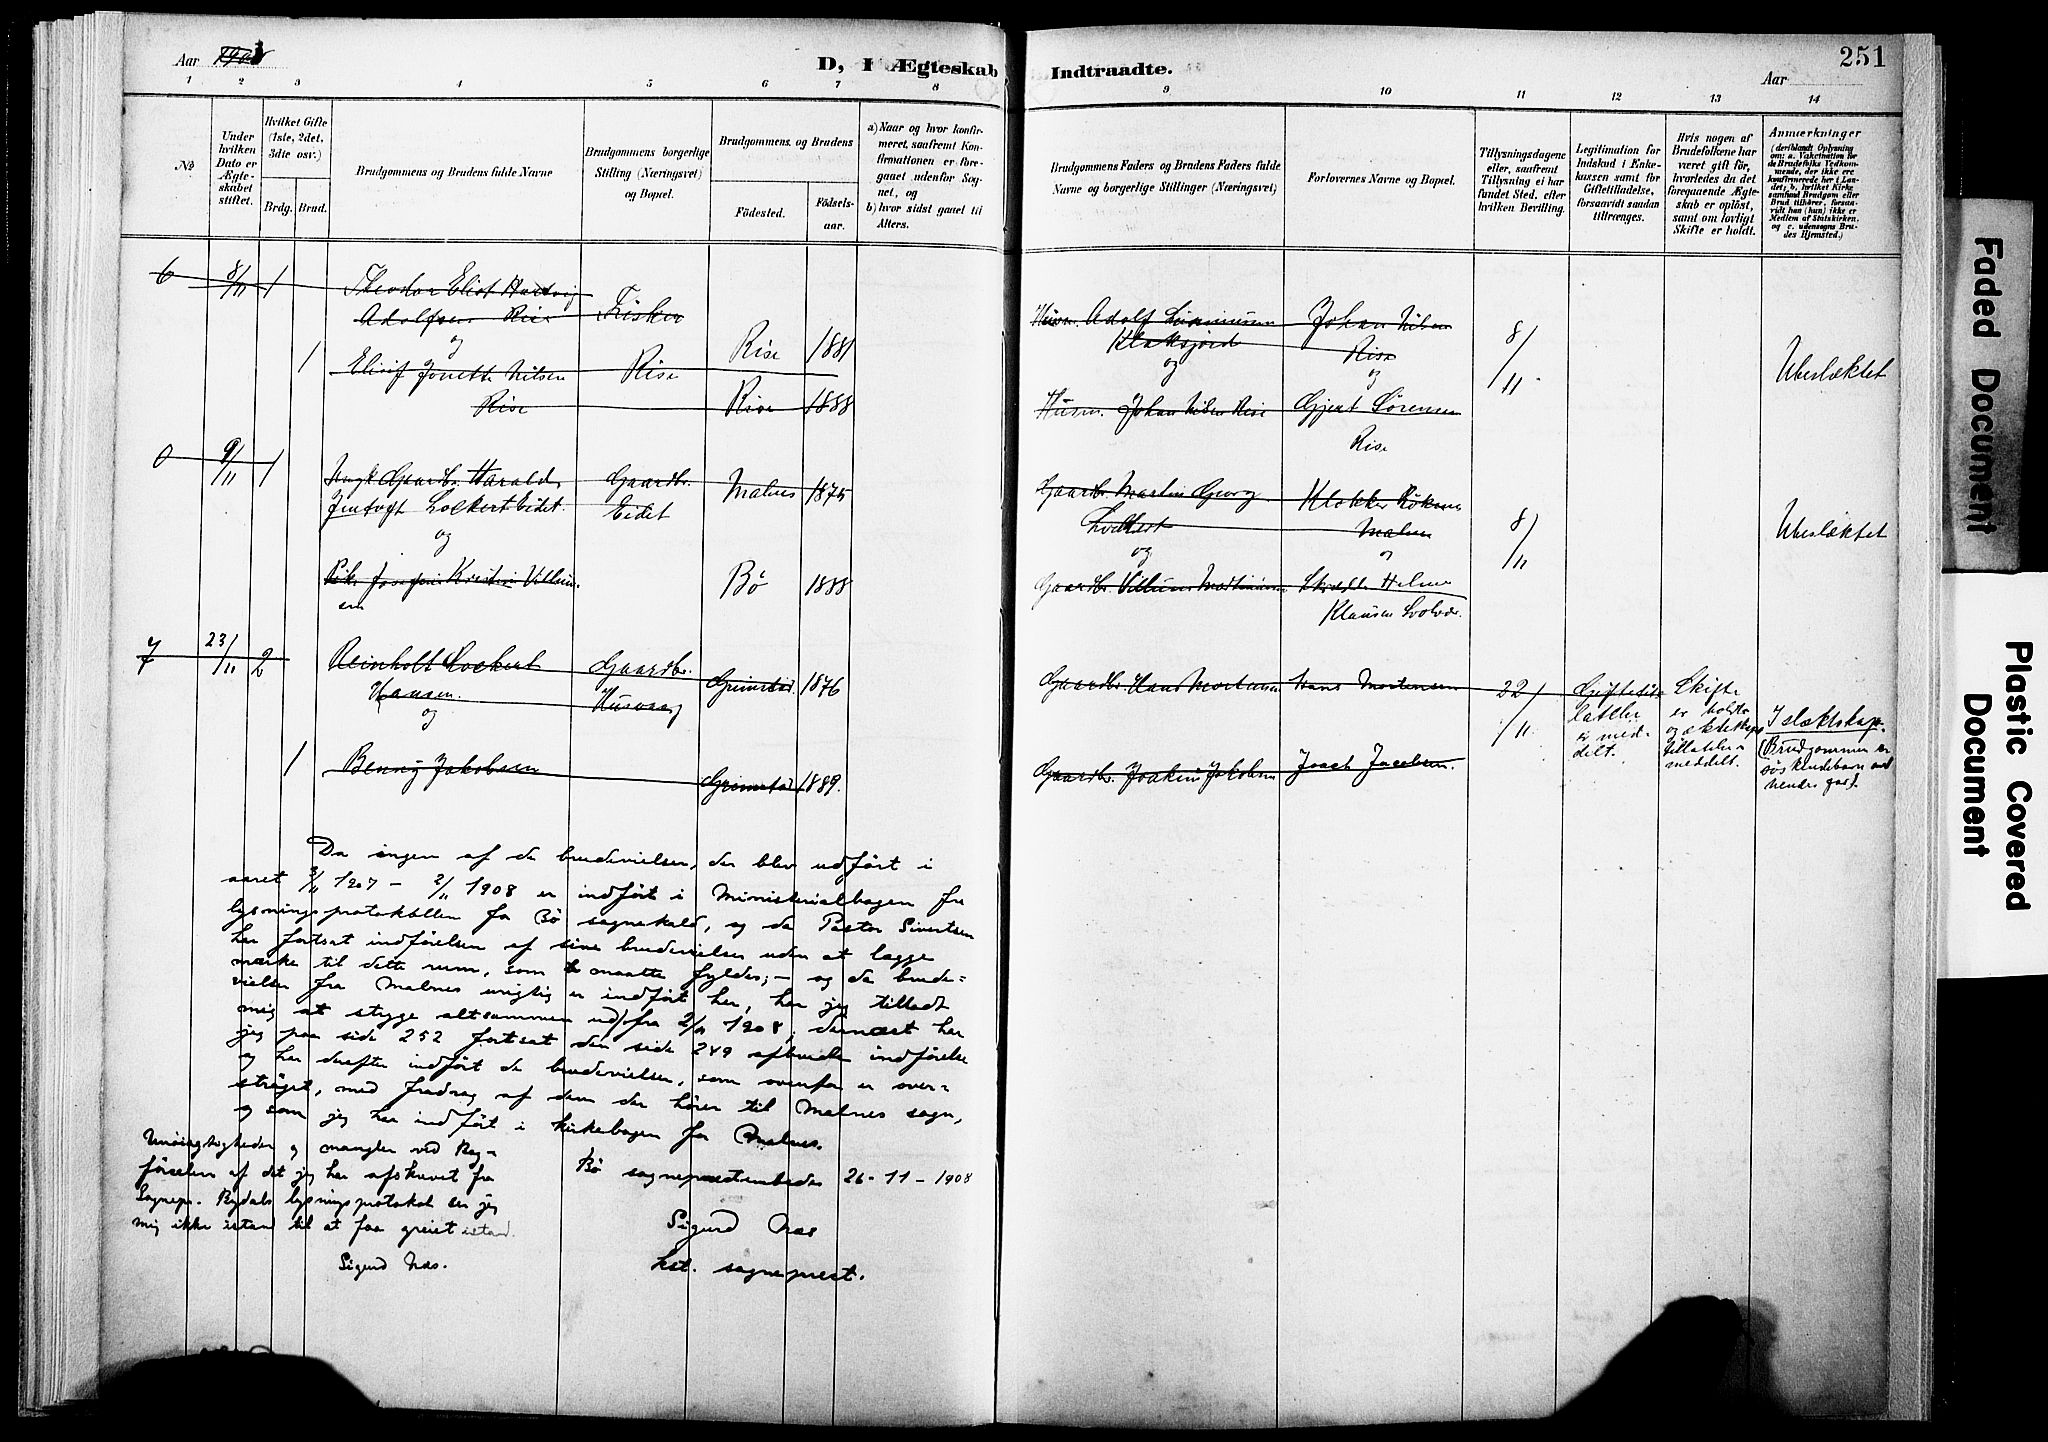 Aar 1908
D, I Ægteskab Indtraadte.
Aar
251
1 2 3 4 5 6 7 8 9 10 11 12 13 14
No
Under hvilken Dato er Ægteskabet stiftet.
Hvilket Gifte (1ste, 2det, 3die osv.)
Brdg.
Brud.
Brudgommens og Brudens fulde Navne
Brudgommens borgerlige Stilling (Næringsvei) og Bopæl.
Brudgommens og Brudens
Fødested.
Fødselsaar.
a) Naar og hvor konfirmeret, saafremt Konfirmationen er foregaaet udenfor Sognet, og
b) hvor sidst gaaet til Alters.
Brudgommens Faders og Brudens Faders fulde Navne og borgerlige Stillinger (Næringsvei)
Forlovernes Navne og Bopæl.
Tillysningsdagene eller, saafremt Tillysning ei har fundet Sted, efter hvilken Bevilling.
Legitimation for Indskud i Enkekassen samt for Giftetilladelse, forsaavidt saadan tiltrænges.
Hvis nogen af Brudefolkene har været gift før, hvorledes da det foregaaende Ægteskab er opløst, samt om lovligt Skifte er holdt.
Anmærkninger
(deriblandt Oplysning om: a. Vakcination for de Brudefolks Vedkommende, der ikke ere konfirmerede her i Landet; b. hvilket Kirkesamfund Brudgom eller Brud tilhører, forsaavidt han (hun) ikke er Medlem af Statskirken, og c. udensogns Brudes Hjemsted.)
6 8/11 1 Theodor Eliot Hartvig
Adolfsen Rise Fisker Rise 1881
og
1 Elisif Jonette Nilsen Rise
Rise Rise 1888
Husm. Adolf
Klaksjord
og
Husm. Johan Nilsen Rise
Johan Nilsen
Rise
og
Gjert Sørensen
Rise
8/11
Ubeslæktet
0 9/11 1 Ungk. Gaardbr. Harald
Jentoft Lockert Eidet.
Gaardbr.
Eidet
Malnes 1875
og
Pike Josefine Kristine Villumsen
Bø 1888
Gaardbr. Martin Georg
Lockert
og
Gaardbr. Villum Martinusen
Klokker
Malnes
Helmer
Klausen Svolvær.
8/11
Ubeslæktet
7 23/11 2 Reinholt Lockert
Hansen.
og
Gaardbr.
Husvaag
Grimstad 1876
1 Benny Jakobsen
Grimstad 1889.
Gaardbr. Hans Mortensen
Hans Mortensen
Gaardbr. Joakim Jakobsen
22/11
Giftetilladelse
er meddelt.
Skifte
er holdt
og ækteskaps
tilladelse
meddelt.
I slæktskap.
(Brudgommen er
søskendebarn ved
hendes far).
Da ingen af de brudevielser, der blev udført i
aaret 3/11 1907 – 2/11 1908 er indført i Ministerialbogen fra
lysningsprotokollen for Bø sognekald, og da Pastor Sivertsen
har fortsat indførelsen af sine brudevielser uden at lægge
mærke til dette rum, som maatte fyldes; – og da brudevielser
fra Malnes urigtig er indført her, har jeg tilladt
mig at stryge altsammen ud fra 2/11 1908; dernæst har
jeg paa side 252 fortsat den side 249 afbrudte indførelse
og har derefter indført de brudevielser, som ovenfor er overstrøget,
med fradrag af dem der hører til Malnes sogn,
og som jeg har indført i kirkebogen for Malnes.
Bø sogneprestembede 26-11-1908
Sigurd Næs
kst. sogneprest.
Unøiagtigheder og mangler ved Bogførselen
af det jeg har afskrevet fra
Sognepr. Rydals lysningsprotokol ser jeg
mig ikke istand til at faa greiet istand.
Sigurd Næs.
Faded Document
Plastic Covered
Document